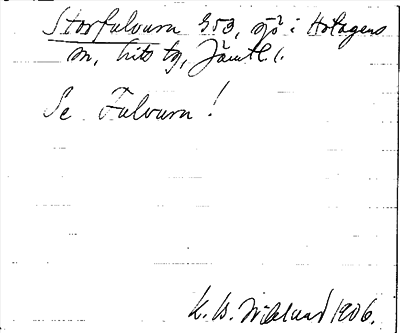 Storfulvurn 353, sjö i Hotagens
sn, Lits tg, Jämtl l.
Se Fulvurn!
K. B. Wiklund 1906.